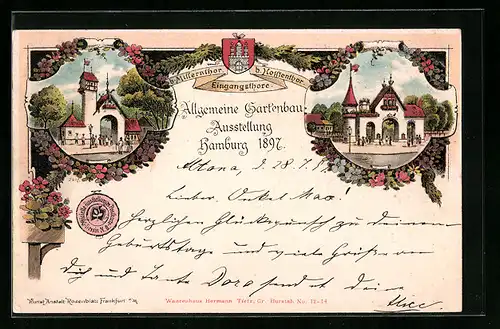 b. Millernthor. b. Holstenthor.
Eingangsthore.
Allgemeine Gartenbau-
Ausstellung
Hamburg 1897.
Altona, d. 28. 7. 97
Lieber Onkel Max!
Herzlichen Glückwunsch zu deinem
Geburtstage und viele Grüße an
dich und Tante Dora sendet deine
Alice.
Kunst-Anstalt Rosenblatt Frankfurt a/M
Waarenhaus Hermann Tietz, Gr. Burstah. No. 12-14